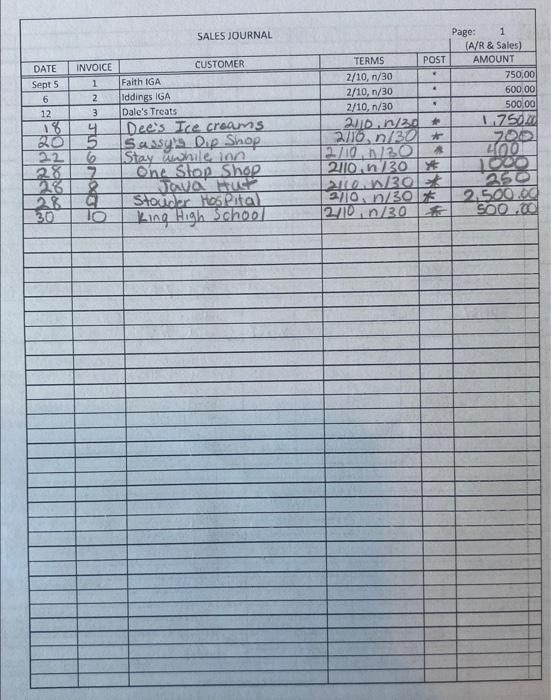 SALES JOURNAL Page: 1
(A/R & Sales)
DATE INVOICE CUSTOMER TERMS POST AMOUNT
Sept 5 1 Faith IGA 2/10, n/30 * 750.00
6 2 Iddings IGA 2/10, n/30 * 600.00
12 3 Dale's Treats 2/10, n/30 * 500.00
18 4 Dee's Ice creams 2/10, n/30 * 1,750.00
20 5 Sassy's Dip Shop 2/10, n/30 * 700
22 6 Stay awhile inn 2/10, n/30 * 400
28 7 One Stop Shop 2/10, n/30 * 1000
28 8 Java Hut 2/10, n/30 * 250
28 9 Stouder Hospital 2/10, n/30 * 2,500.00
30 10 King High School 2/10, n/30 * 500.00